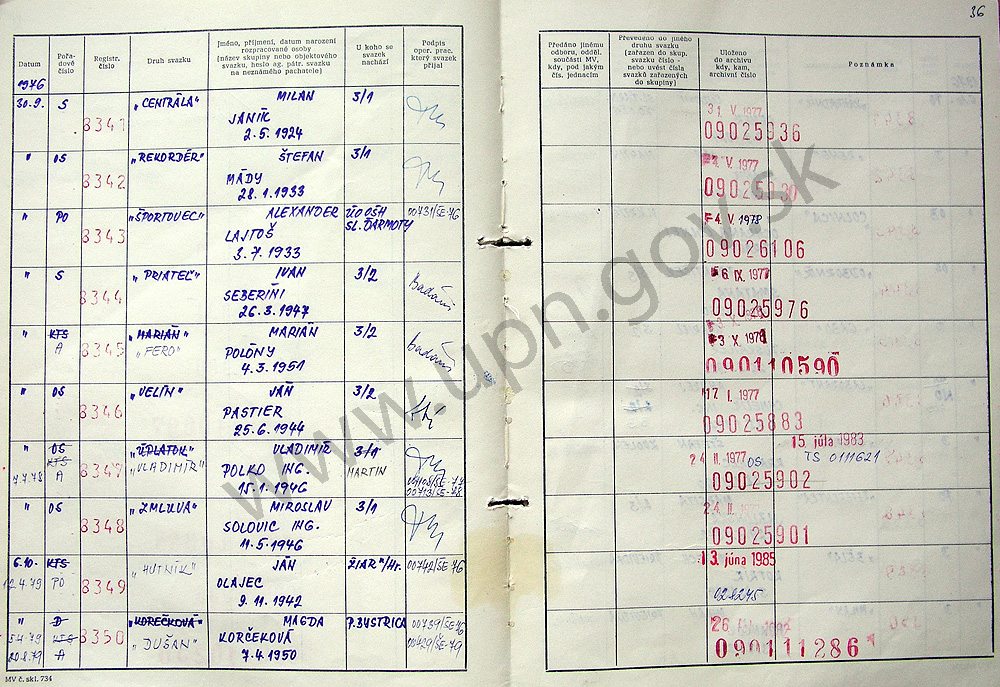 36
Datum
Pořa-
dové
číslo
Registr.
číslo
Druh svazku
Jméno, příjmení, datum narození
rozpracované osoby
(název skupiny nebo objektového
svazku, heslo ag. pátr. svazku
na neznámého pachatele)
U koho se
svazek
nachází
Podpis
oper. prac.
který svazek
přijal
Předáno jinému
odboru, odděl.
součásti MV,
kdy, pod jakým
čís. jednacím
Převedeno do jiného
druhu svazku
(zařazen do skup.
svazku číslo -
nebo uvést čísla
svazků zařazených
do skupiny)
Uloženo
do archivu
kdy, kam,
archivní číslo
Poznámka
1976
30.9. S 8341 „CENTRÁLA" MILAN 3/1
JANÍK
2.5.1924
31. V. 1977
09025936
" OS 8342 „REKORDÉR" ŠTEFAN 3/1
MÁDY
28.1.1933
V. 1977
09025930
" PO 8343 „ŠPORTOVEC" ALEXANDER ÚO OŠH 00731/ŠE-76
LAJTOŠ SL. ĎARMOTY
3.7.1933
4. V. 1978
09026106
" S 8344 „PRIATEĽ" IVAN 3/2
SEBERÍNI
26.3.1947
6 IX. 1977
09025976
" KTS 8345 „MARIÁN" MARIÁN 3/2
A „FERO" POLÓNY
4.3.1951
3 X. 1978
090110590
" OS 8346 „VELÍN" JÁN 3/2
PASTIER
25.6.1944
17 I. 1977
09025883
" OS 8347 „ÚPLATOK" VLADIMÍR 3/1
KTS „VLADIMÍR" POLKO ING. MARTIN
7.7.78 A 15.1.1946
15 júla 1983
24 II. 1977 OS TS 0111621
09025902
" OS 8348 „ZMLUVA" MIROSLAV 3/1
SOLOVIC ING.
11.5.1946
24. II.
09025901
6.10. KTS 8349 „HUTNÍK" JÁN ŽIAR n/Hr. 00742/ŠE-76
12.4.79 PO OLAJEC
9.11.1942
13. júna 1985
" D 8350 „KOREČKOVÁ" MAGDA P. BYSTRICA 00739/ŠE-76
5.4.79 KTS „DUŠAN" KORČEKOVÁ 00429/ŠE-79
20.8.79 A 7.4.1950
26
090111286
MV č. skl. 734
www.upn.gov.sk